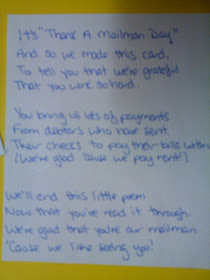 It's "Thank A Mailman Day"
And so we made this card,
To tell you that we're grateful
That you work so hard.
You bring us lots of payments
From debtors who have sent.
Their checks to pay their bills with
(We're glad 'cause we pay rent!)
We'll end this little poem
Now that you've read it through.
We're glad that you're our mailman
'Cause we like seeing you!